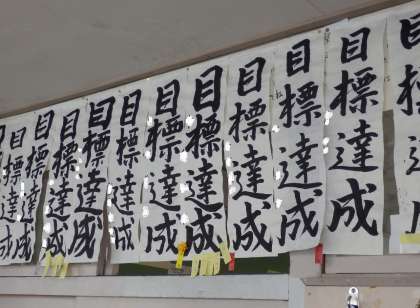 目標達成
目標達成
目標達成
目標達成
目標達成
目標達成
目標達成
目標達成
目標達成
目標達成
目標達成